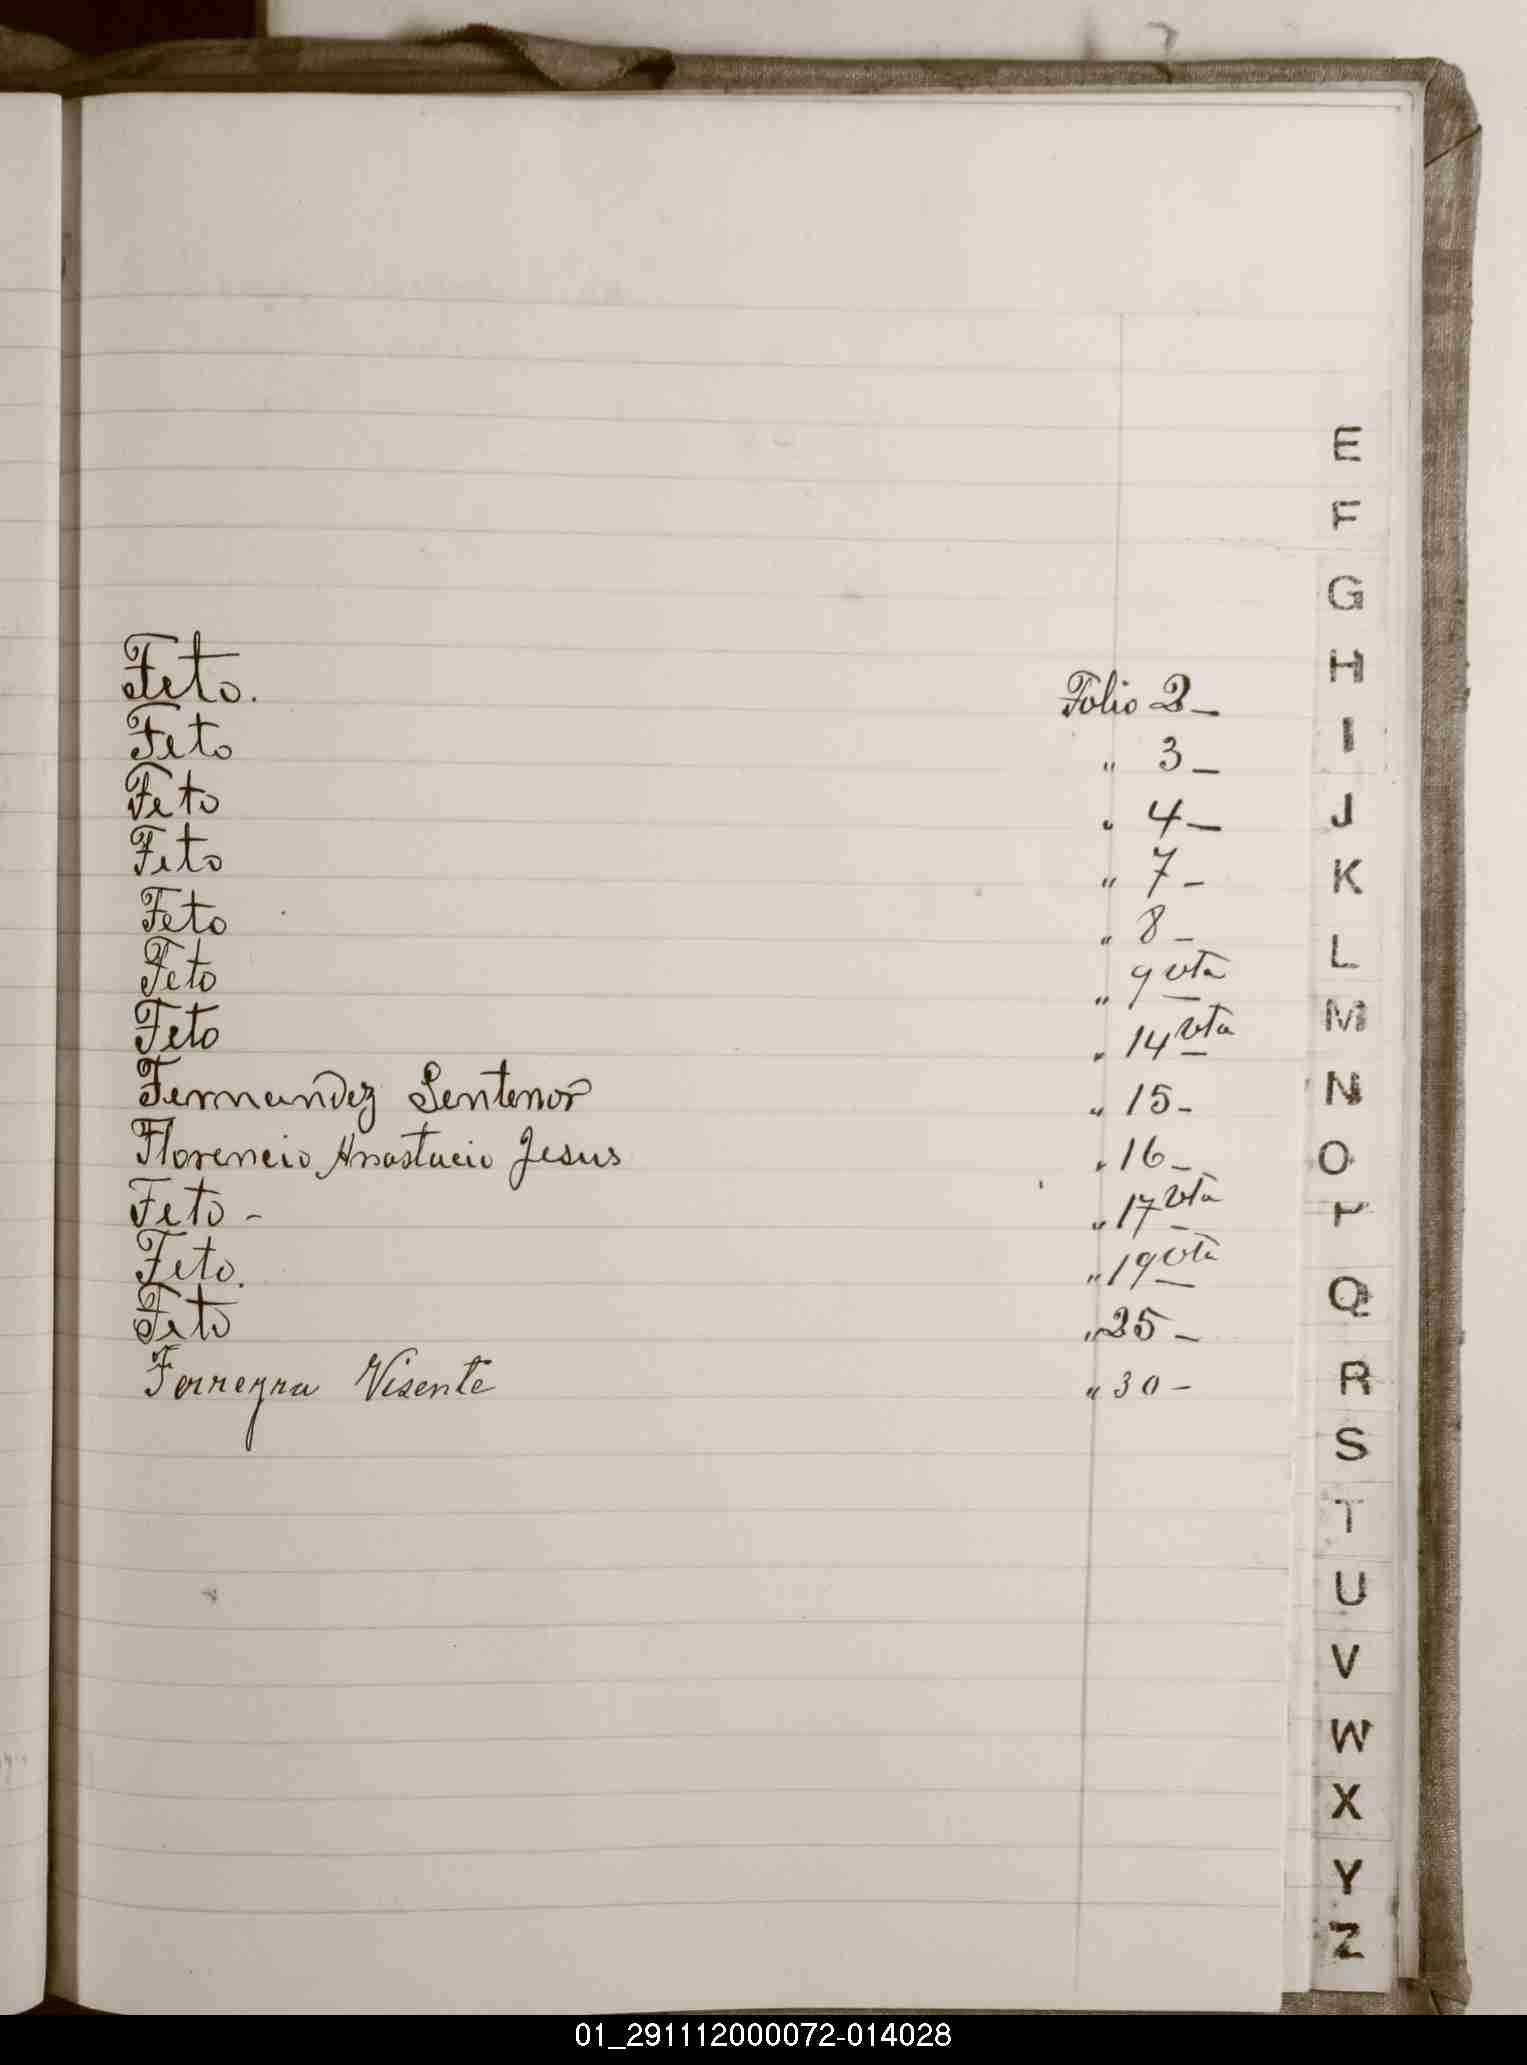 Feto. Folio 2 –
Feto " 3 –
Feto " 4 –
Feto " 7 –
Feto " 8 –
Feto " 9 vta
Feto " 14 vta
Fernandez Sentenor " 15 –
Florencio Anastacio Jesus " 16 –
Feto – " 17 vta
Feto. " 19 vta
Feto " 25 –
Ferreyra Visente " 30 –
E
F
G
H
I
J
K
L
M
N
O
P
Q
R
S
T
U
V
W
X
Y
Z
01_291112000072-014028